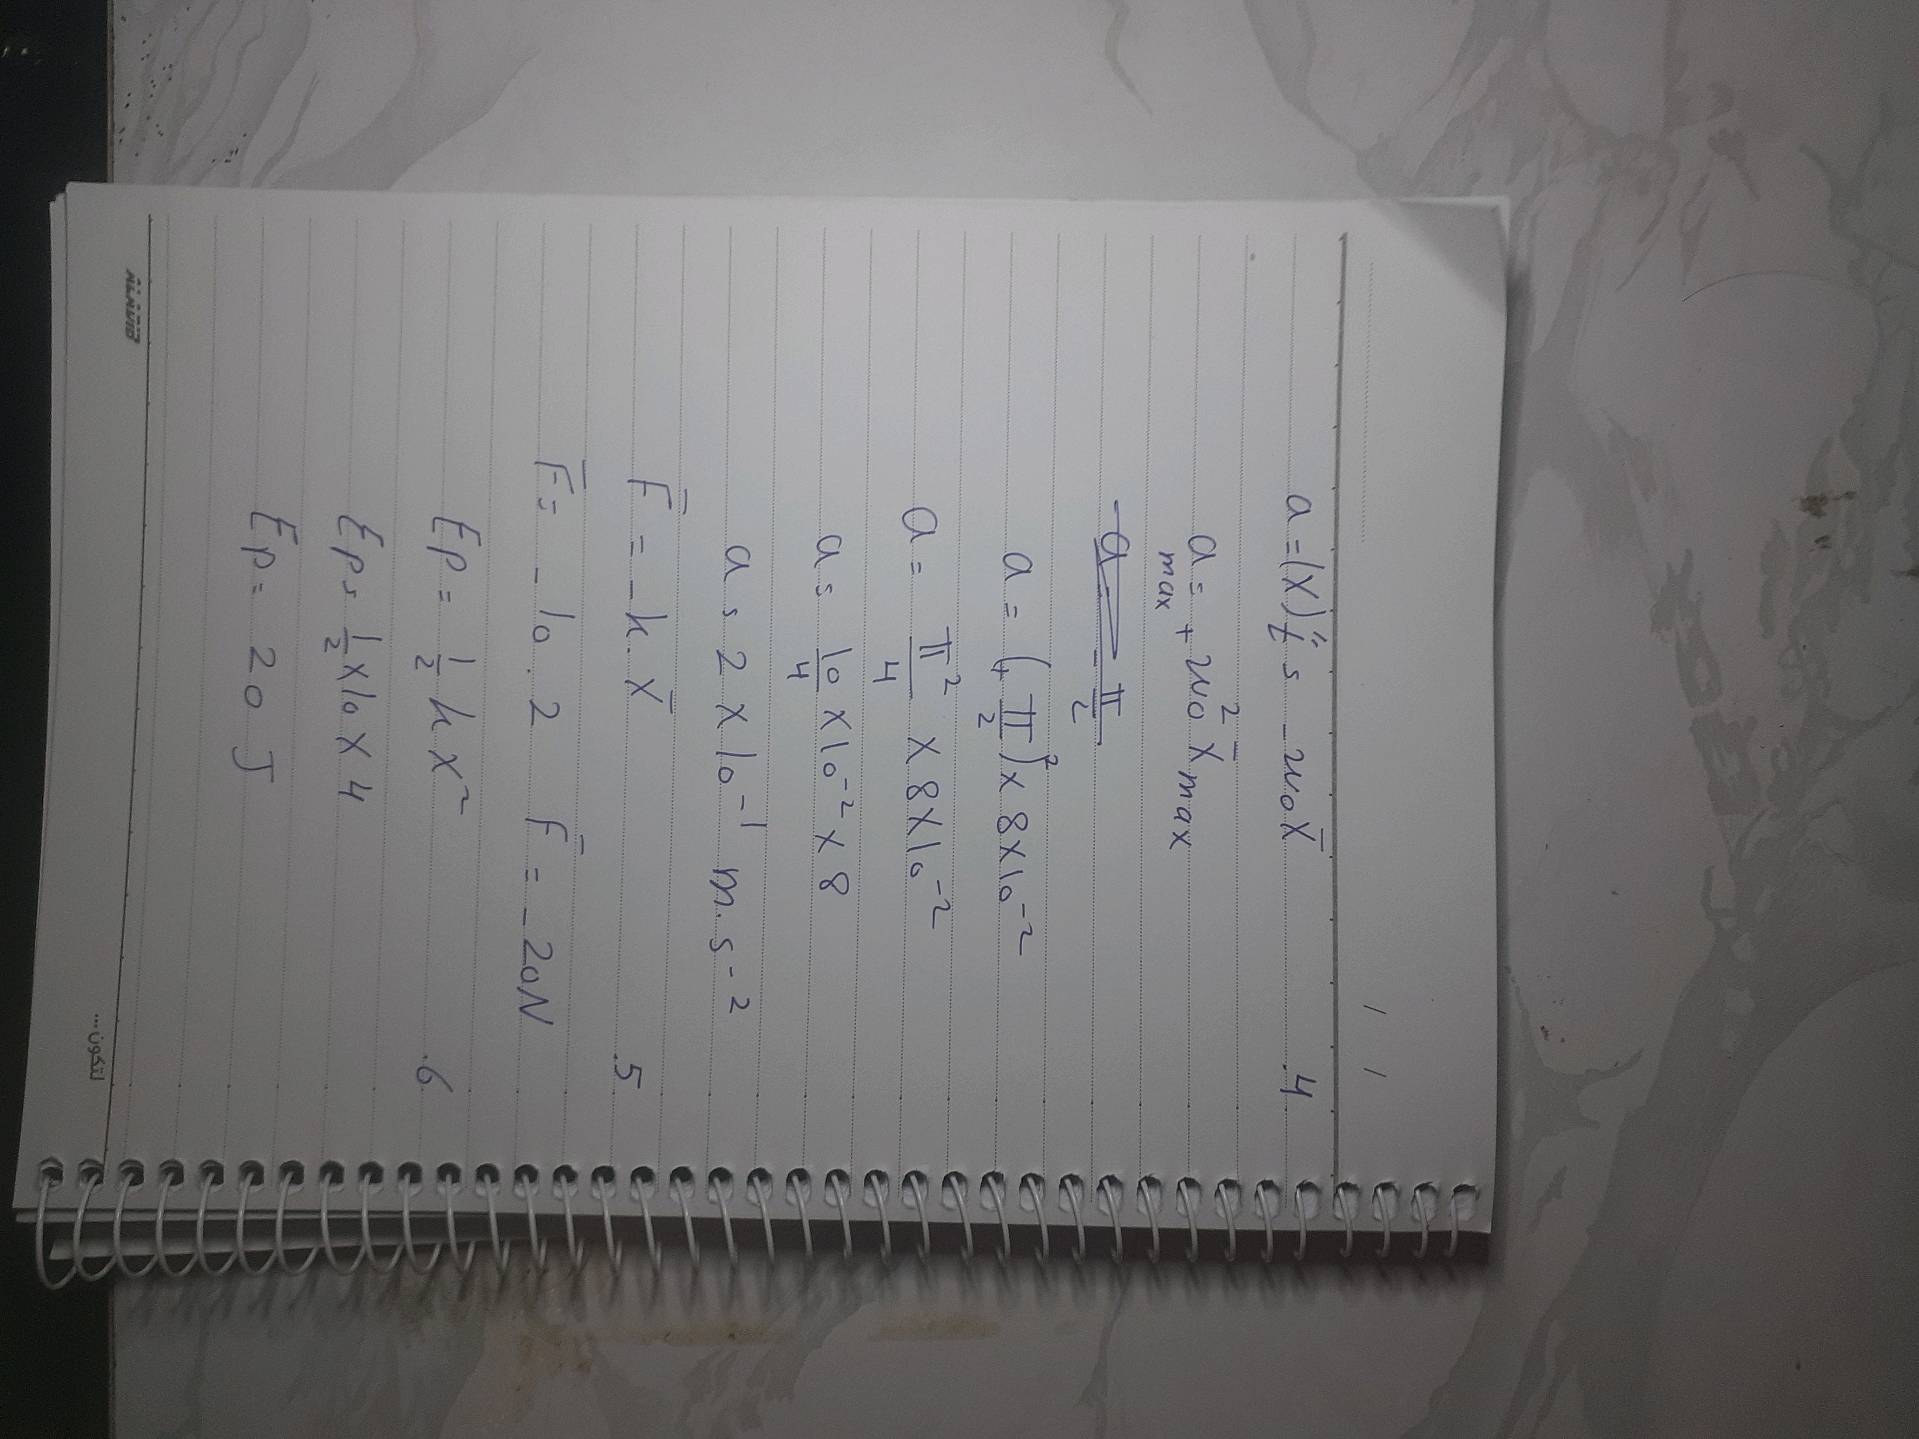 / /
.4 a = (x)"t = -ω0 x̄
a max = + ω0² x̄ max
a = - π/2
a = (+ π/2)² × 8×10⁻²
a = π²/4 × 8×10⁻²
a = 10/4 × 10⁻² × 8
a = 2 × 10⁻¹ m.s⁻²
.5 F̄ = -k. x̄
F̄ = -10. 2 F̄ = -20N
.6 Ep = 1/2 k x²
Ep = 1/2 × 10 × 4
Ep = 20 J
لتكون...